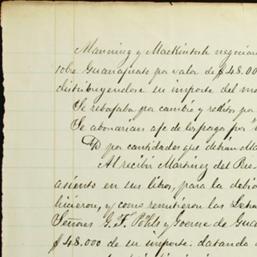 Manning y Mackintosh negocian
sobre Guanajuato por valor de $48.00
distribuyendose su importe del mo
Se rebajaba por cambio y rédito po
Se abonarian a/c de
Pº por cantidades que debian Ma
Al recibir Martinez del Rio
asiento en sus libros, para la debi
hicieron, y como remitieron las Letra
Señores G. F. Pohls y Goerne de Gua
$48.000 de su importe. datando